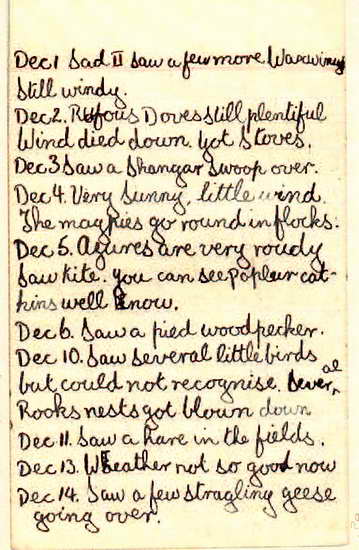 Dec 1 Sad II Saw a few more Waxwings
Still windy.
Dec 2. Rufous Doves still plentiful
Wind died down. Got Stoves.
Dec 3 Saw a Shangar swoop over.
Dec 4. Very Sunny, little wind.
The magpies go round in flocks.
Dec 5. Azures are very roudy
Saw kite. you can see poplar cat-
kins well now.
Dec 6. Saw a pied woodpecker.
Dec 10. Saw several little birds
but could not recognise. Several
Rooks nests got blown down
Dec 11. Saw a hare in the fields.
Dec 13. Weather not so good now
Dec 14. Saw a few stragling geese
going over.